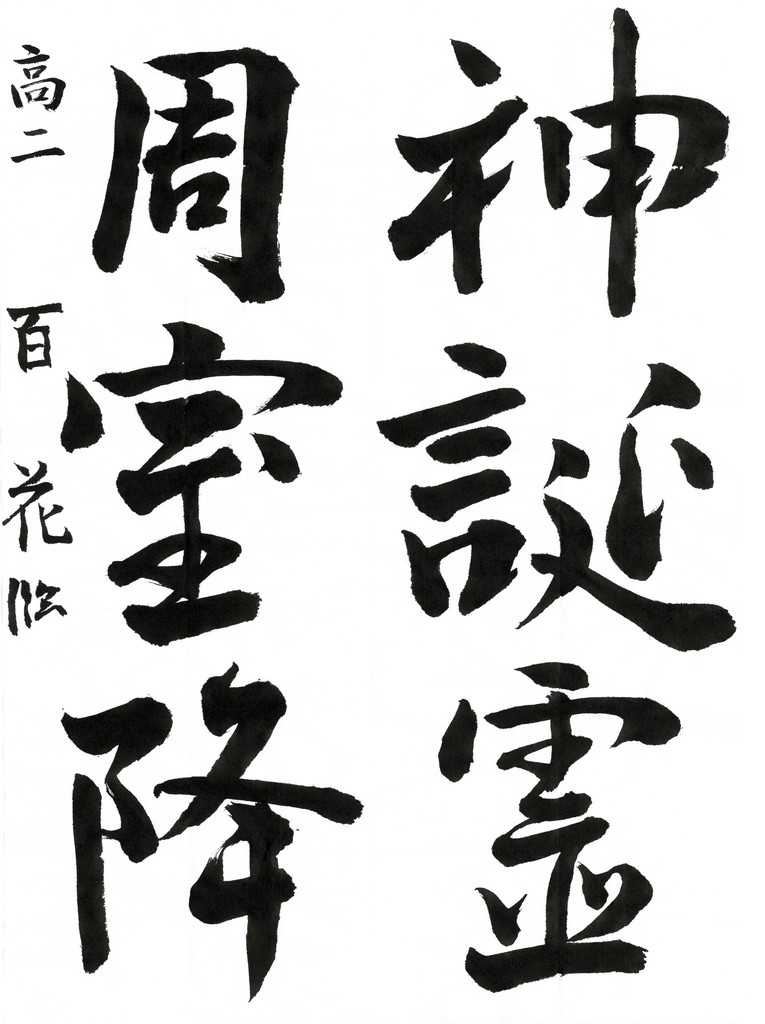 神誕靈
周室降
高二 百花臨